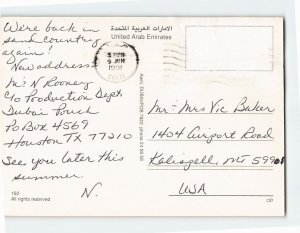 We're back in
sand country
again!
New address:
Mr N Rooney
C/o Production Dept.
Dubai Pouch
Po Box 4569
Houston TX 77210
See you later this
summer.
N.
192
All rights reserved
الامارات العربية المتحدة
United Arab Emirates
1991
DUBAI
Mr - Mrs Vic Baker
1404 Airport Road
Kalispell, MT 59901
USA